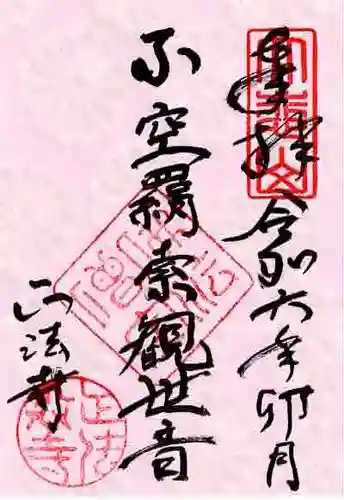 奉拝
令和六年卯月
不空羂索観世音
正法寺